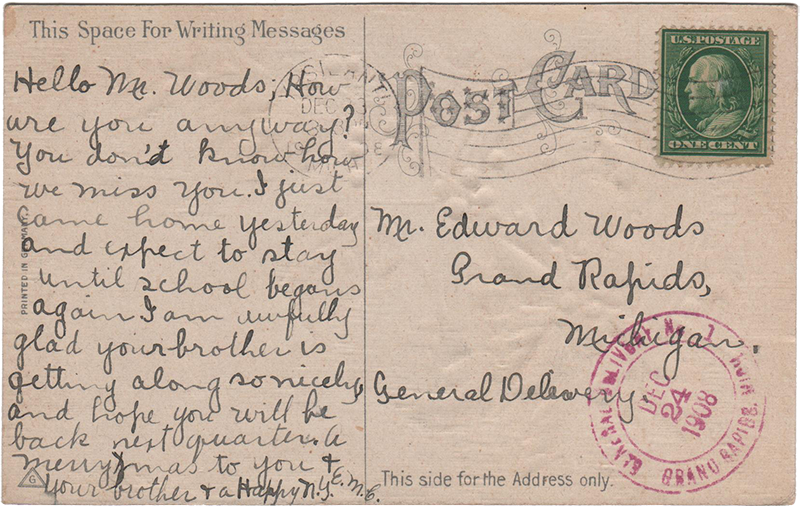 This Space For Writing Messages
POST CARD
U.S. POSTAGE
ONE CENT
DEC
MICH
Hello Mr. Woods, How
are you anyway?
You don't know how
we miss you. I just
came home yesterday
and expect to stay
until school begans
again I am awfully
glad your brother is
getting along so nicely,
and hope you will be
back next quarter. A
merry xmas to you +
your brother + a Happy N.Y. E.M.C.
Mr. Edward Woods
Grand Rapids,
Michigan.
General Delevery.
PRINTED IN GERMANY
GENERAL DELIVERY
DEC
24
1908
GRAND RAPIDS, MICH.
G
This side for the Address only.